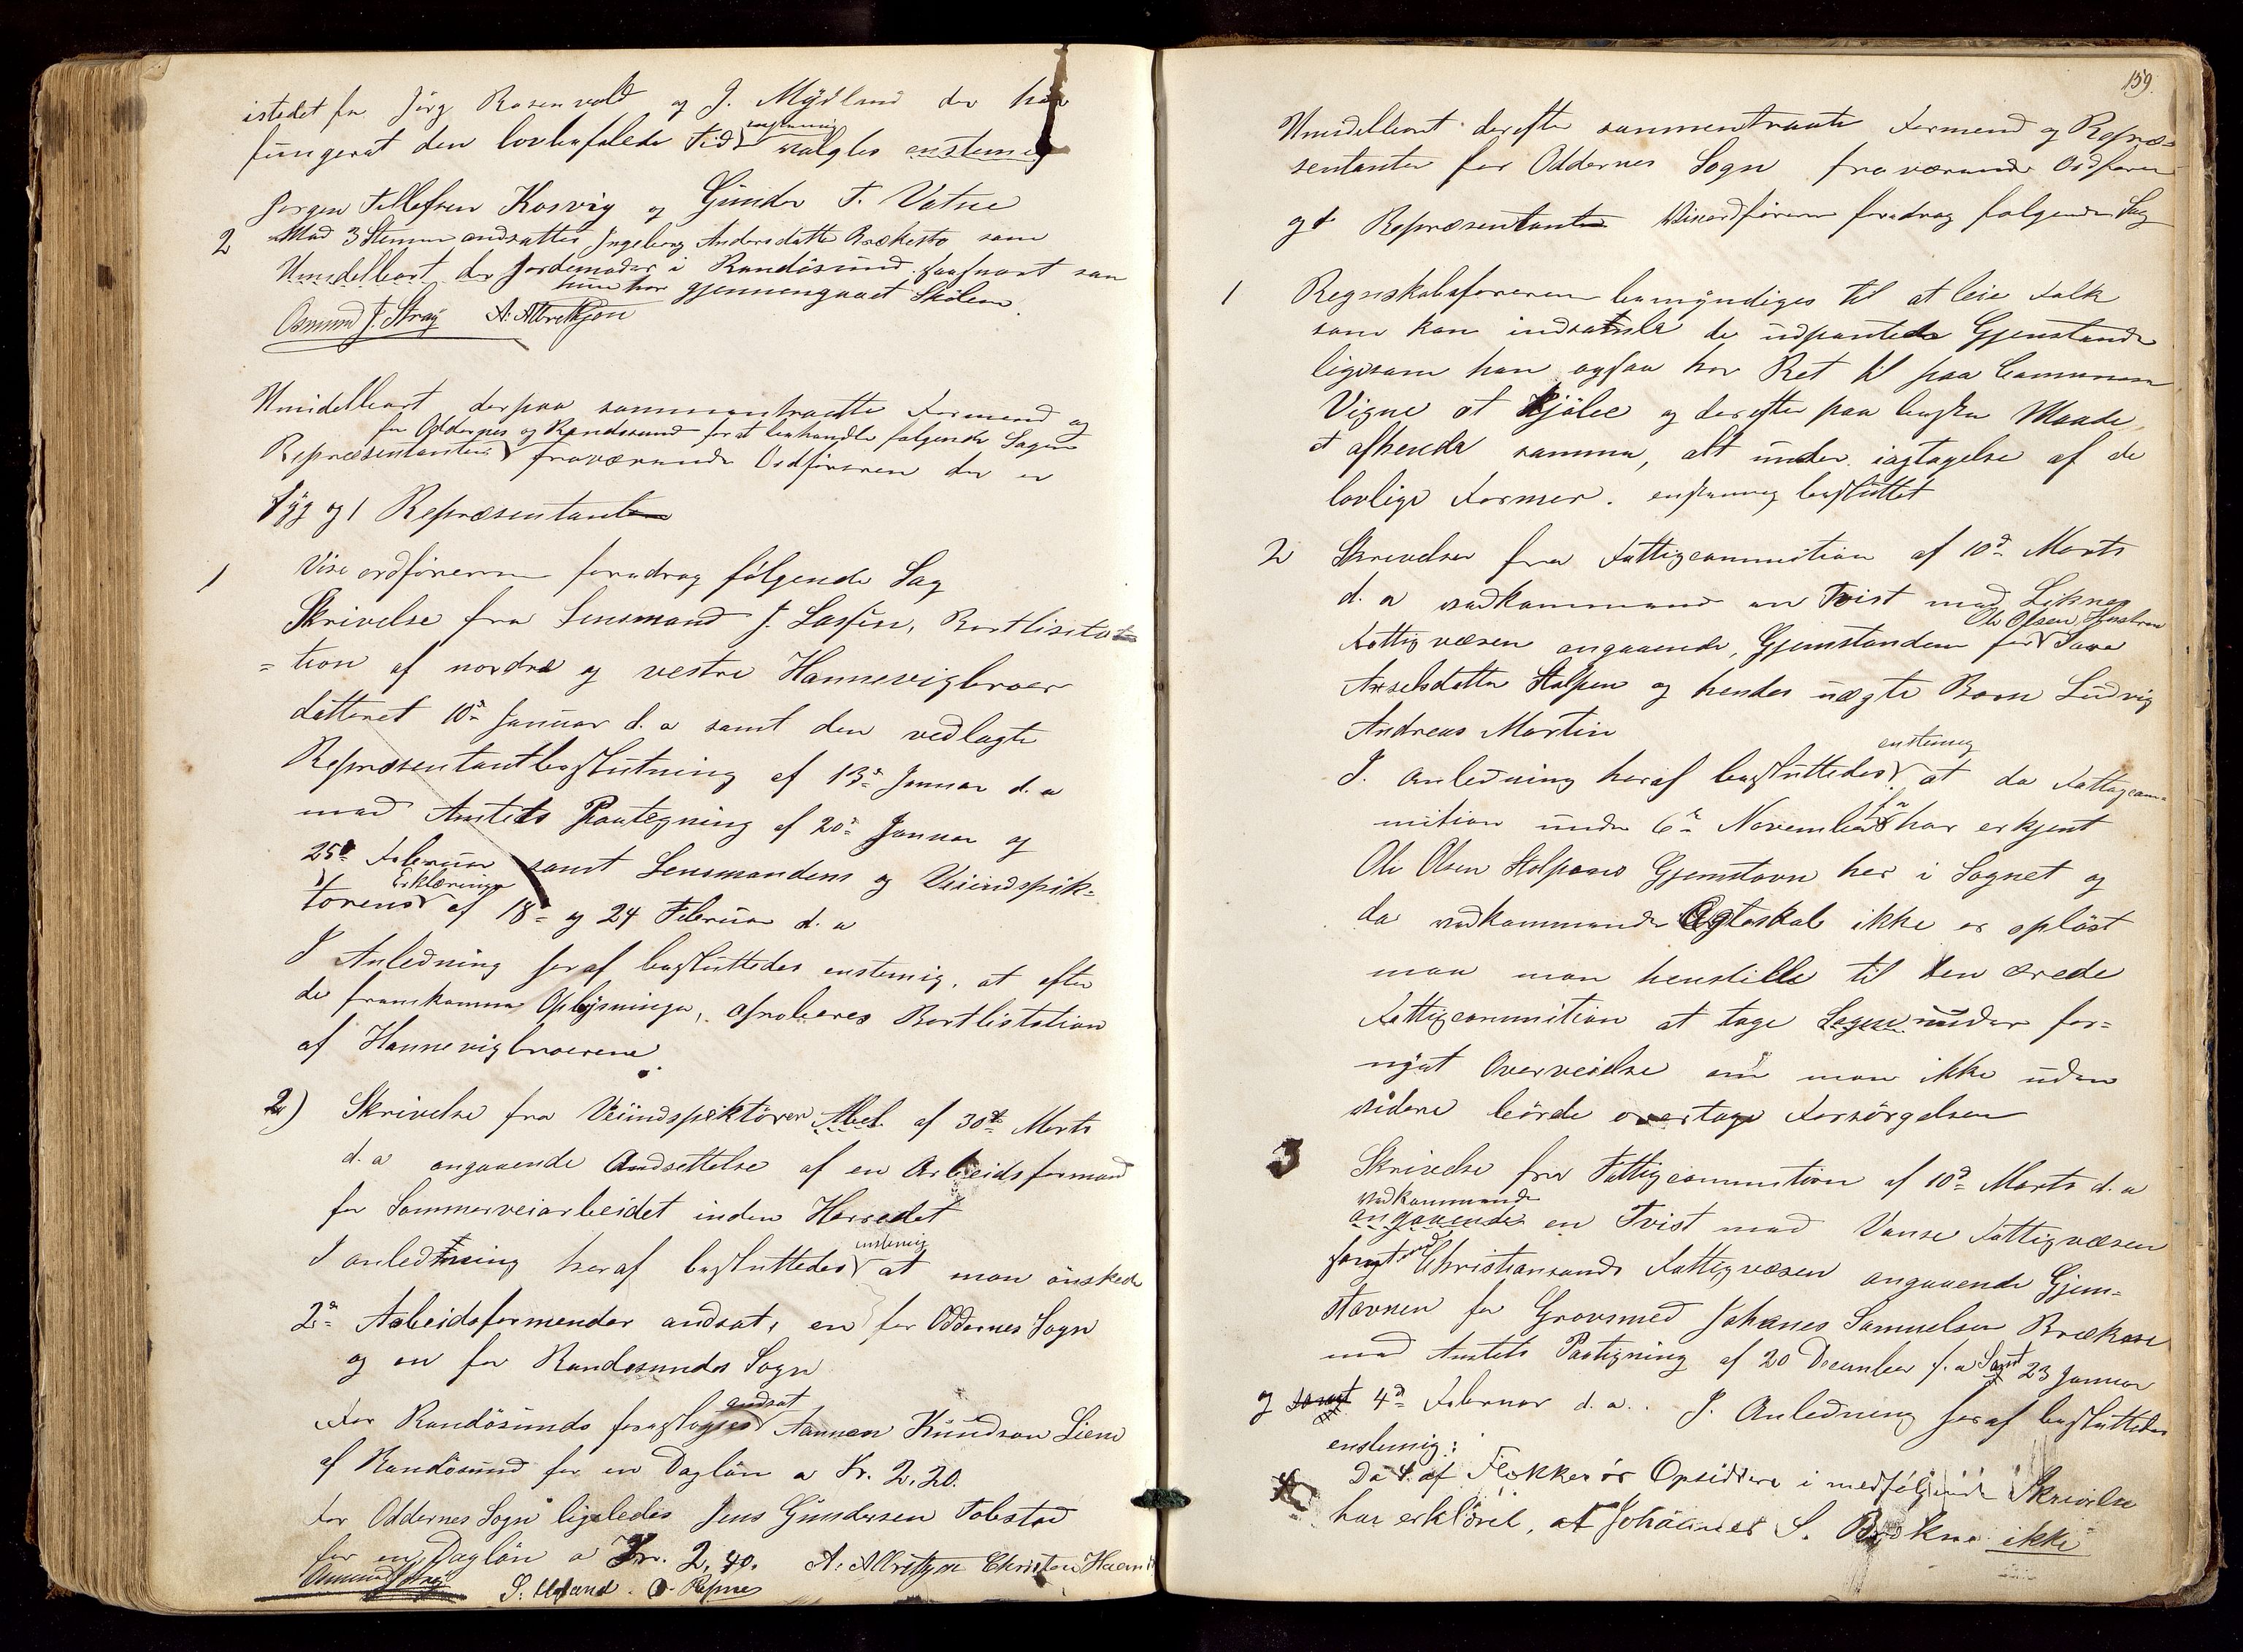 istedet for Jörg Rosenvold og J. Mydland der har
fungeret den lovbefalede Tid valgtes enstemig
Jörgen Tellefsen Kosvig og Gunder T. Vatne
2 Mad 3 Stemmer andsattes Ingeborg Andersdatter Brækesto som
Umidelbart der Jordemoder i Randösund saasnart som
hun har gjennemgaaet Skolen
Osmund J. Stray A. Albretsen
Umidelbart derpaa sammentraadte Formend og
for Oddernes og Randesund for at behandle følgende Sager
Repræsentanter fraværende Ordföreren der er
syg og 1 Repræsentant
1 Vise ordföreren foredrog følgende Sag
Skrivelse fra Lensmand J. Lassen, Bortlisita
=tion af nordre og vestre Hannevigbroer
datteret 10d Januar d. a samt den vedlagte
Repræsentantbeslutning af 13d Januar d. a
med Amtets Paategning af 20d Januar og
25d Februar samt Lensmandens og Veiindspek=
torens Erklæringer af 18d og 24 Februar d. a
I Anledning heraf besluttedes enstemig, at efter
de fremkomne Oplysninger, aproberes Bortlistation
af Hannevigbroerene.
2) Skrivelse fra Veiindspektören Abel af 30d Marts
d. a angaaende Andsettelse af en Arbeidsformand
for Sommerveiarbeidet inden Herredet
I anledning heraf besluttedes enstemig at man önskede
2d Arbeidsformender andsat, en for Oddernes Sogn
og en for Randesunds Sogn
For Randösunds foreslogges andsat Aanen Knudson Liene
af Randösund for en Daglön a Kr. 2,20.
For Oddernes Sogn ligeledes Jens Gundersen Tobstad
for en Daglön a Kr. 2,40. A. Albretsen Christen Haan
Osmund Stray S. Ugland. O. Repnes
159.
Umidelbart derefter sammentraadte Formend og Repræ=
sentanter for Oddernes Sogn fraværende Ordföreren
og 1 Repræsentant Viseordföreren foredrog følgende Sag
1 Regnskabsföreren bemyndiges til at leie Folk
som kan indsamle de udpantede Gjenstande
ligesom han ogsaa har Ret til paa Communens
Vegne at kjöbe og derefter paa beste Maade
at afhende samme, alt under iagtagelse af de
lovlige Former. enstemig besluttet
2 Skrivelse fra Fattigcommition af 10d Marts
d. a vedkommende en Tvist med Liknes
Fattigvæsen angaaende, Gjemstanden for Ole Olsen Hustru Tava
Axelsdatter Stolpen og hendes uægte Barn Ludvig
Andreas Martin
I. Anledning heraf besluttedes enstemig at da Fattigcom=
mition under 6d November f. a har erkjent
Ole Olsen Stolpens Gjemstavn her i Sognet og
da vedkommende Ægteskab ikke er oplöst
maa man henstille til den ærede
Fattigcommition at tage Sagen under for=
nyet Overveielse om man ikke uden
videre börde overtage Forsörgelsen
3 Skrivelse fra Fattigcommition af 10d Marts d. a
vedkommende
angaaende en Tvist med Vanse Fattigvæsen
samt med Christiansands Fattigvæsen angaaende Gjem=
stavnen for Grovsmed Johanes Samuelsen Brækne
med Amtets Paategning af 20 December f. a samt 23 Januar
og samt 4d Februar d. a.. I. Anledning heraf besluttedes
enstemig:
Da 4 af Flekkerös Opsiddere i medfölgende Skrivelse
har erklöret, at Johannes S. Brækne ikke